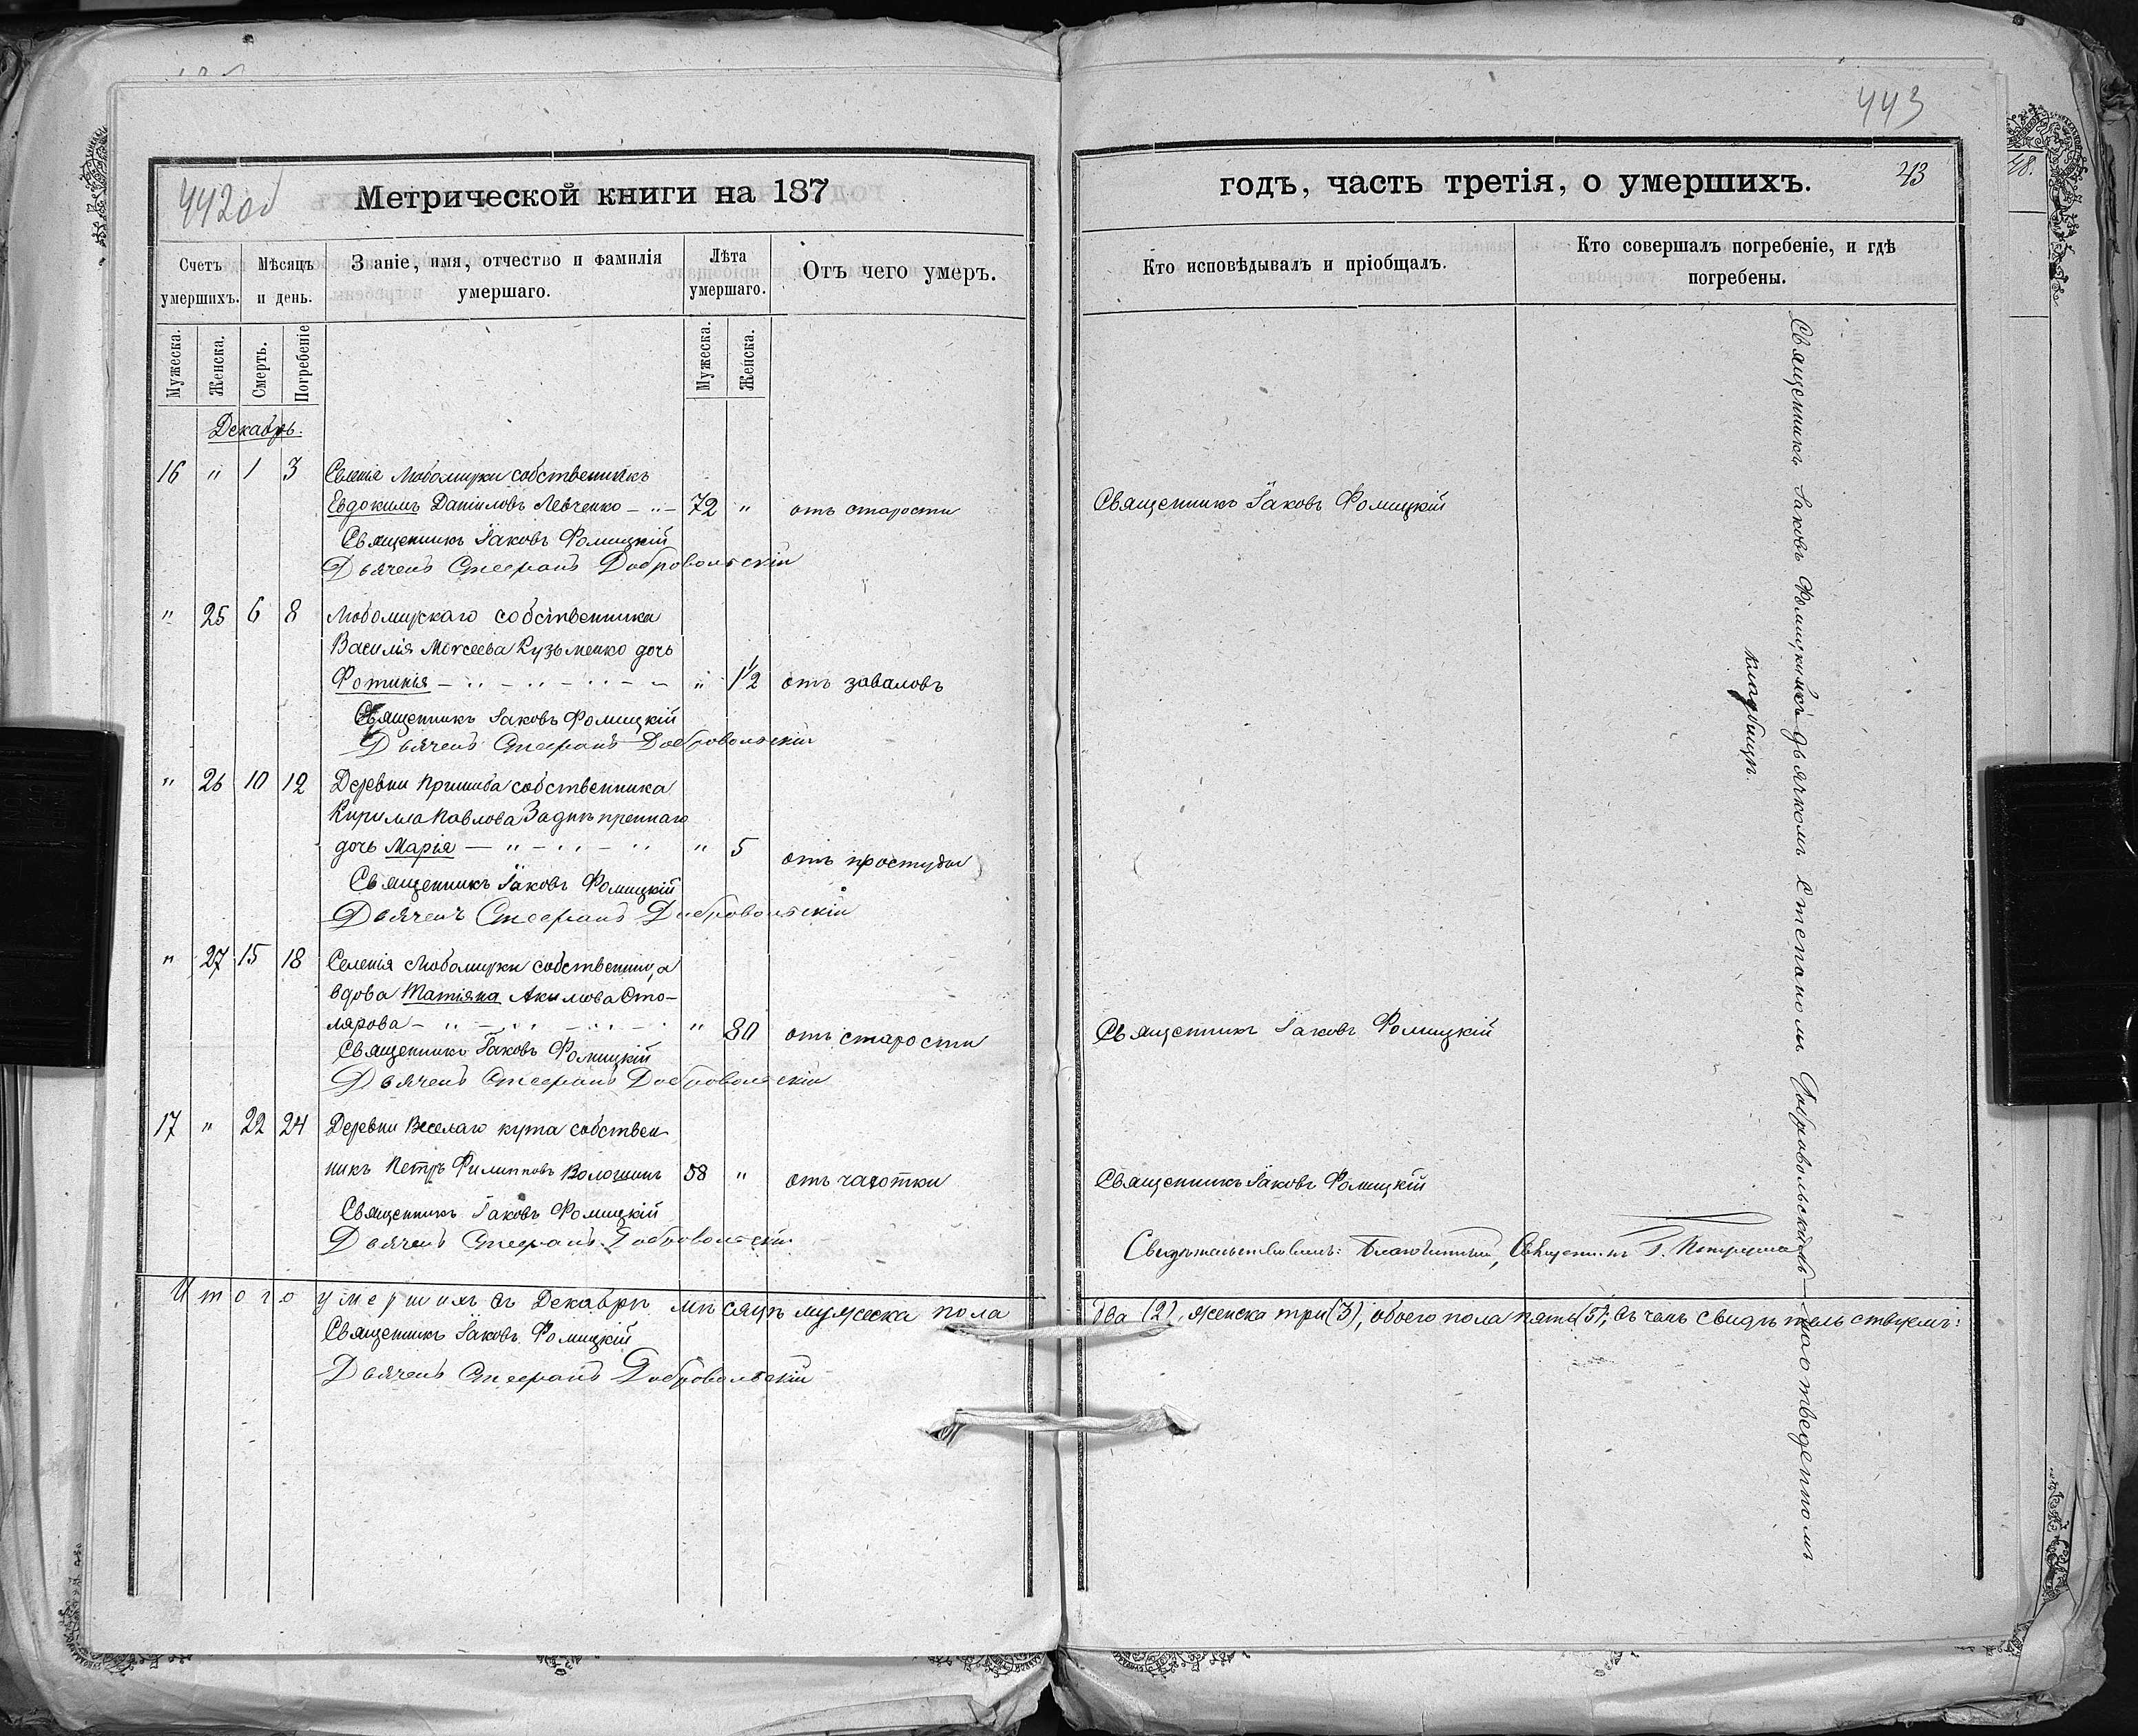 442об
Метрической книги на 187
Счетъ умершихъ.
Мѣсяцъ и день.
Званіе, имя, отчество и фамилія умершаго.
Лѣта умершаго.
Отъ чего умеръ.
Мужеска.
Женска.
Смерть.
Погребеніе
Мужеска.
Женска.
Декабрь.
16 " 1 3 Селенія Любомирки собственникъ
Евдокимъ Даніиловъ Левченко 72 " отъ старости
Священникъ Іаковъ Фомицкій
Дьячекъ Стефанъ Добровольскій
" 25 6 8 Любомирскаго собственника
Василія Моѵсеева Кузьменко дочь
Фотинія " 1½ отъ заваловъ
Священникъ Іаковъ Фомицкій
Дьячекъ Стефанъ Добровольскій
" 26 10 12 Деревни Пришиба собственника
Кирилла Павлова Заднѣпренаго
дочь Марія " 5 отъ простуды
Священникъ Іаковъ Фомицкій
Дьячекъ Стефанъ Добровольскій
" 27 15 18 Селенія Любомирки собственница
вдова Татіяна Акимова Сто-
лярова " 80 отъ старости
Священникъ Іаковъ Фомицкій
Дьячекъ Стефанъ Добровольскій
17 " 22 24 Деревни Веселаго кута собствен-
никъ Петръ Филипповъ Волошинъ 58 " отъ чахотки
Священникъ Іаковъ Фомицкій
Дьячекъ Стефанъ Добровольскій
Итого умершихъ въ Декабрѣ мѣсяцѣ мужеска пола
Священникъ Іаковъ Фомицкій
Дьячекъ Стефанъ Добровольскій
443
годъ, часть третія, о умершихъ.
43
Кто исповѣдывалъ и пріобщалъ.
Кто совершалъ погребеніе, и гдѣ погребены.
Священникъ Іаковъ Фомицкій
Священникъ Іаковъ Фомицкій
Священникъ Іаковъ Фомицкій
Свидѣтельствовалъ: Благочинный, Священникъ Г.
два (2), женска три (3), обоего пола пять (5); въ чемъ свидѣтельствуемъ:
Священникъ Іаковъ Фомицкій съ дьячкомъ Стефаномъ Добровольскимъ на отведенномъ
кладбищѣ.
48.